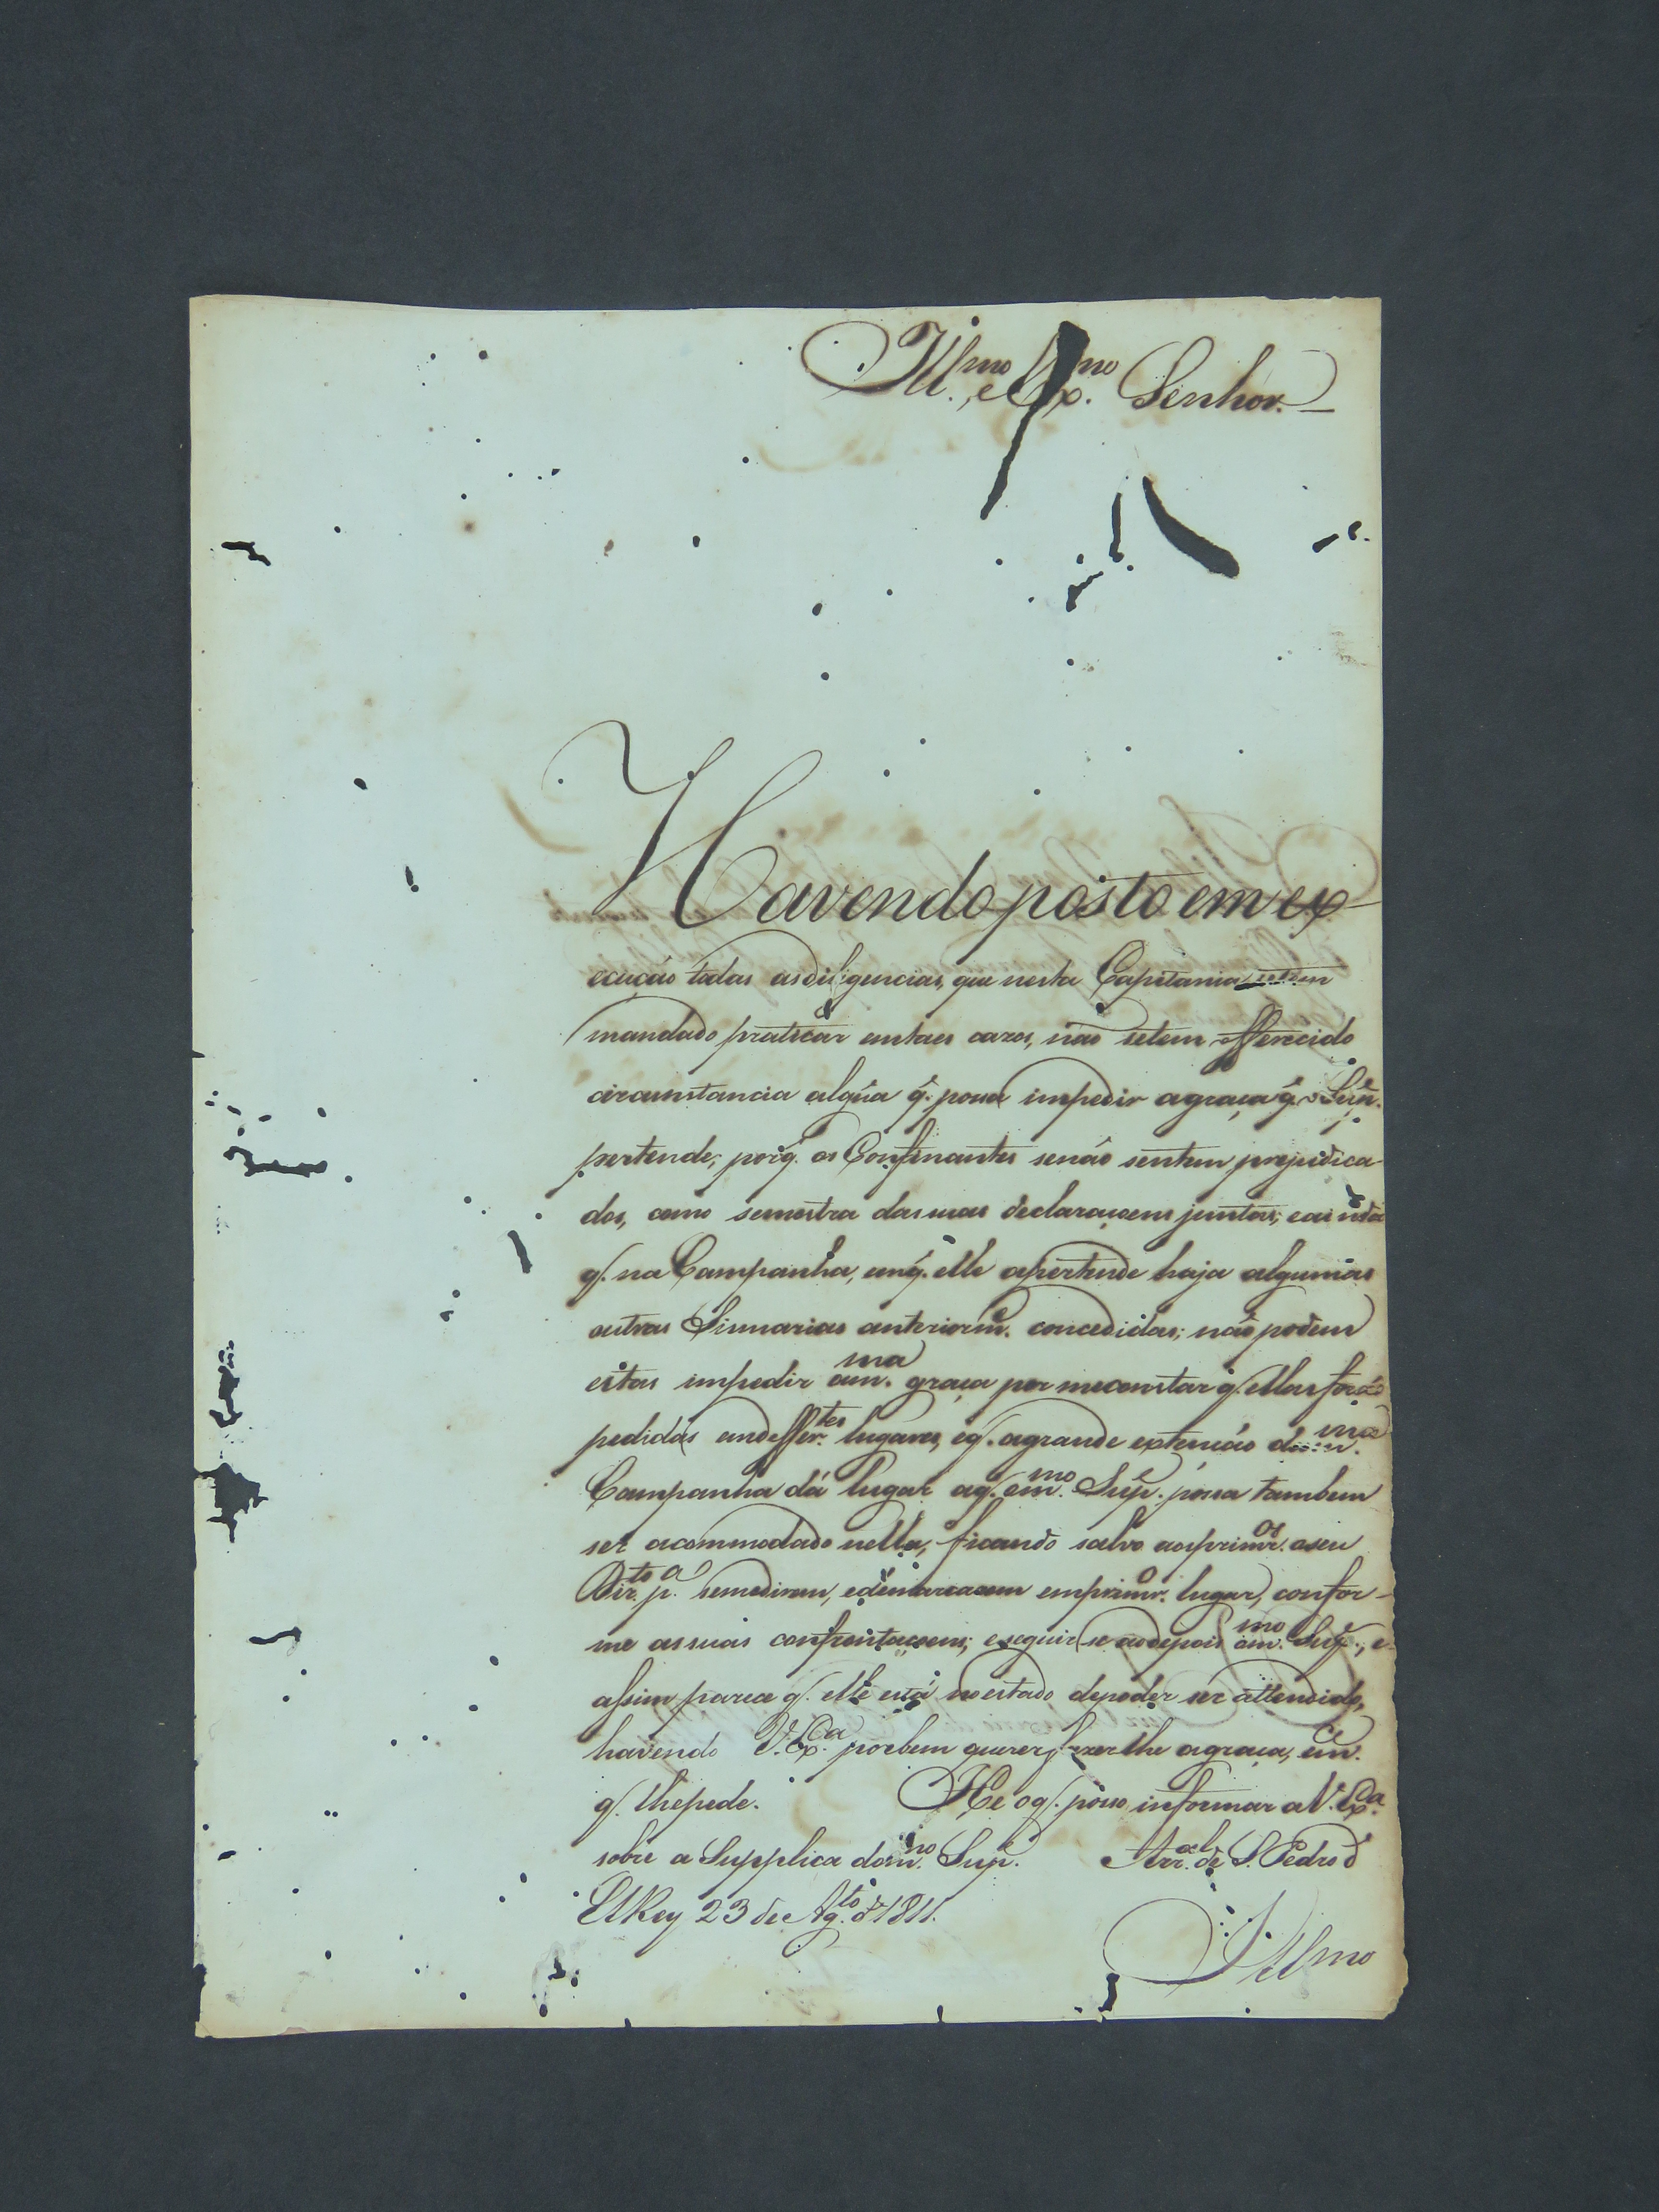 Ill.mo, e Ex.mo Senhor.
Havendo posto em ex-
ecução todas as diligencias, que nesta Capitania se tem
mandado praticar em taes cazos, não se tem offerecido
circumstancia algũa q̃. possa impedir a graça q̃. o Sup.e
pertende; porq̃. os Confinantes se não sentem prejudica-
dos, como se mostra das suas declaraçoens juntas; e ainda
q̃. na Campanha, em q̃. elle a pertende haja algumas
outras Sismarias anteriorm.e concedidas; não podem
estas impedir a m.ma graça por me constar q̃. ellas forão
pedidas em deffer.tes lugares, e q̃. a grande extenção da m.ma
Campanha dá lugar a q̃. o m.mo Sup.e possa tambem
ser acommodado nella, ficando salvo aos primr.os o seu
Dir.to p.a se medirem, e demarcarem em primr.o lugar, confor-
me as suas confrontaçoens; e seguir se ao depois o m.mo Sup.e, e
assim parece q̃. elle está no estado de poder ser attendido,
havendo V. Ex.ca por bem querer fazer lhe a graça, em
q̃. lhe pede. He o q̃. posso informar a V. Ex.ca
sobre a Supplica do m.mo Sup.e Arr.al de S. Pedro d'
ElRey 23 de Ag.to d' 1811.
Ill.mo